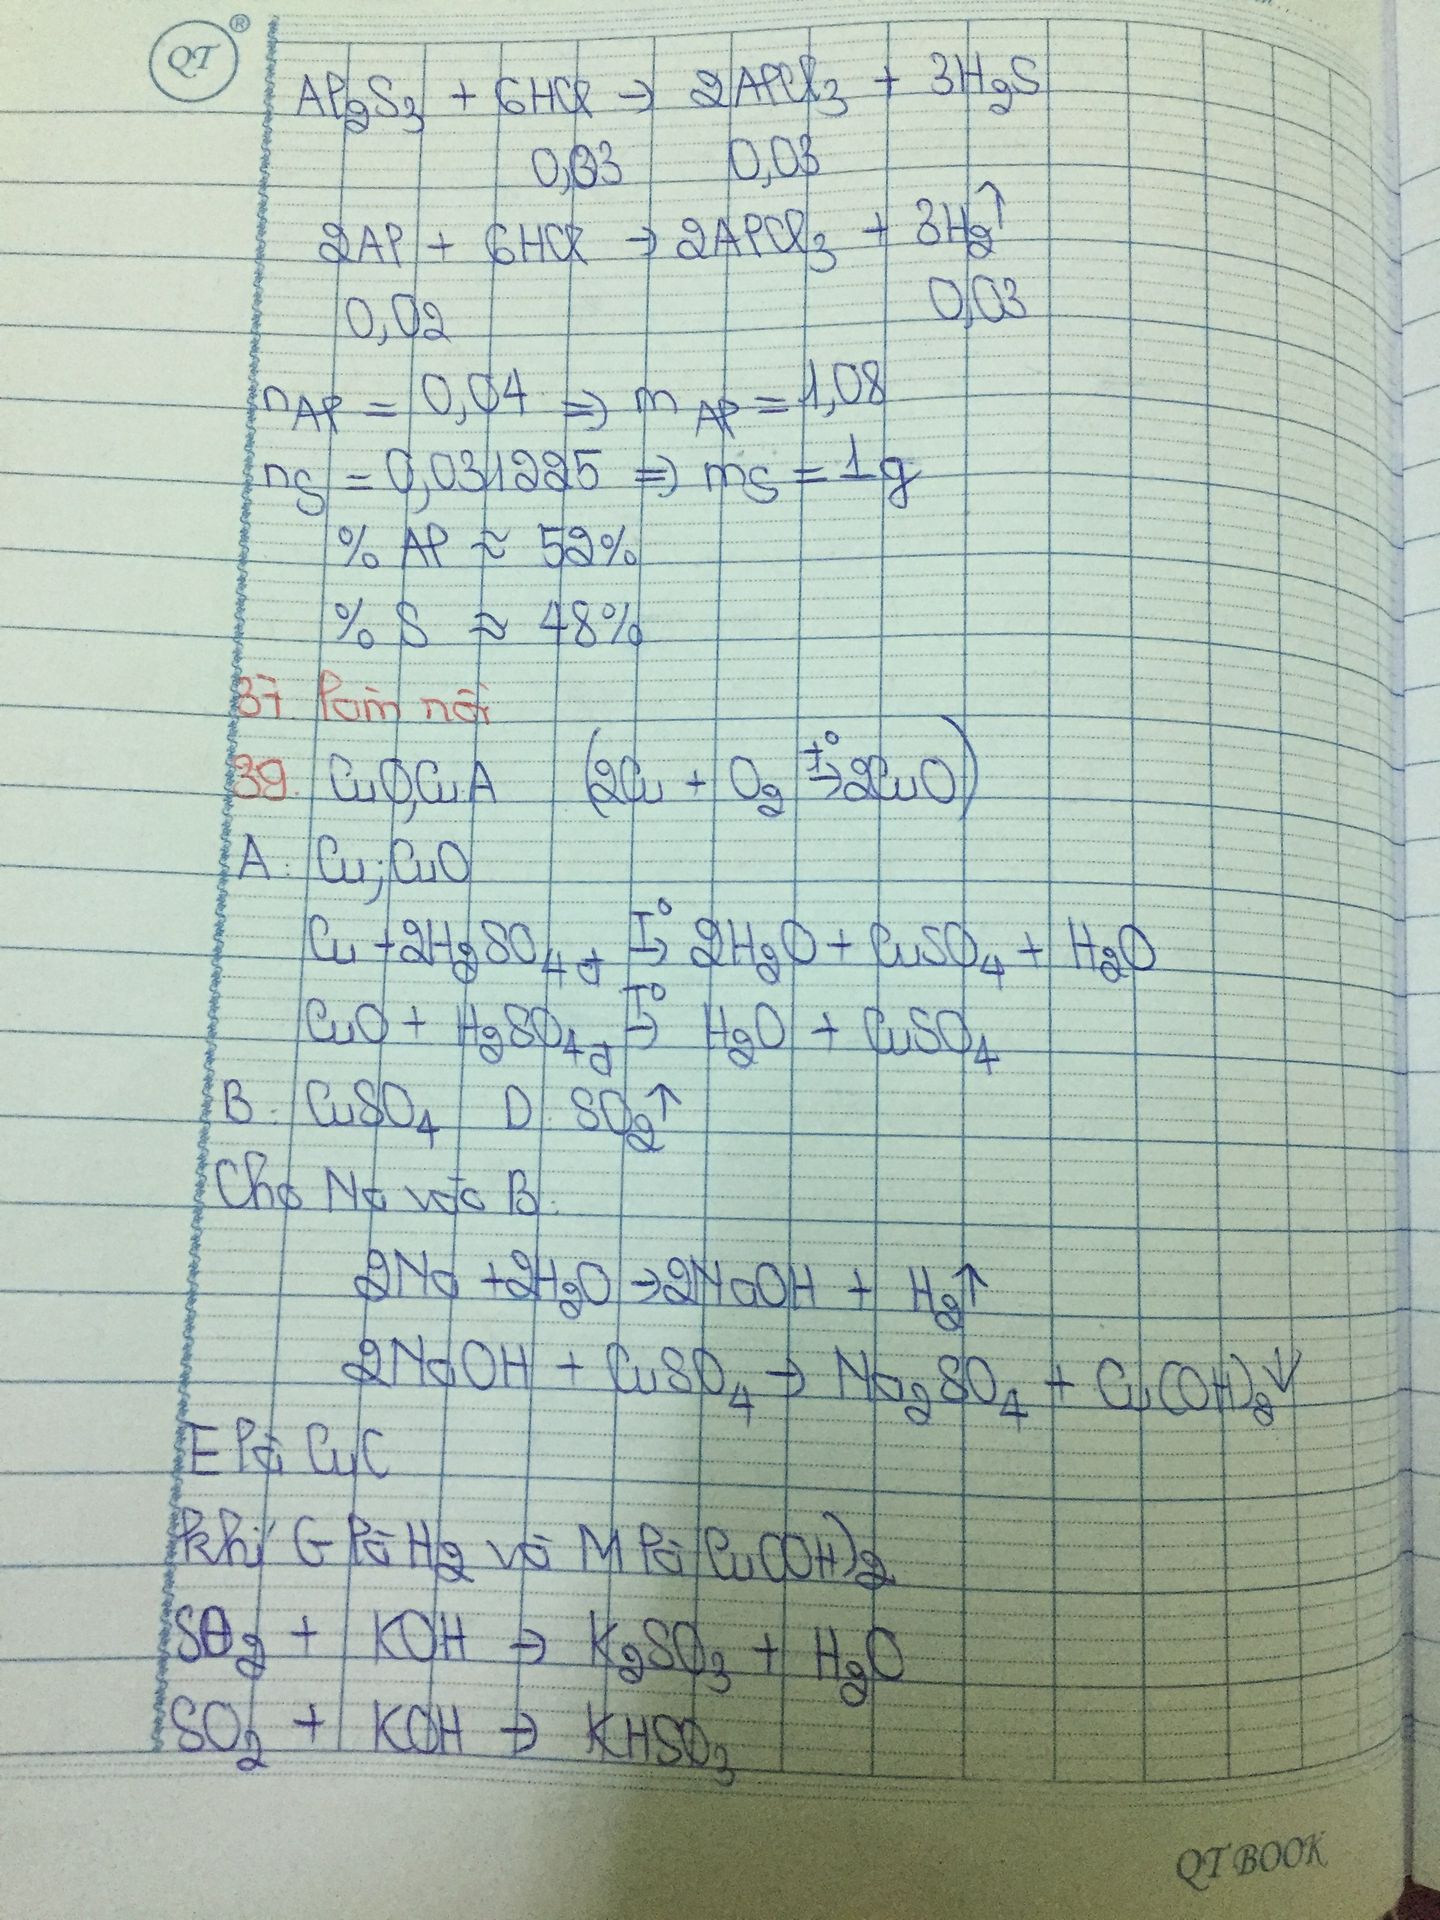 QT ®
Al₂S₃ + 6HCl → 2AlCl₃ + 3H₂S
0,03 0,03
2Al + 6HCl → 2AlCl₃ + 3H₂↑
0,02 0,03
nAl = 0,04 => mAl = 1,08
nS = 0,031225 => mS = 1g
% Al ≈ 52%
% S ≈ 48%
37. làm nồi
39. CuO,CuA (2Cu + O₂ t°→ 2CuO)
A: Cu; CuO
Cu + 2H₂SO₄ đ T°→ 2H₂O + CuSO₄ + H₂O
CuO + H₂SO₄ đ T°→ H₂O + CuSO₄
B: CuSO₄ D: SO₂↑
Cho Na vào B:
2Na + 2H₂O → 2NaOH + H₂↑
2NaOH + CuSO₄ → Na₂SO₄ + Cu(OH)₂↓
E là CuC
khí G là H₂ và M là Cu(OH)₂
SO₂ + KOH → K₂SO₃ + H₂O
SO₂ + KOH → KHSO₃
QT BOOK